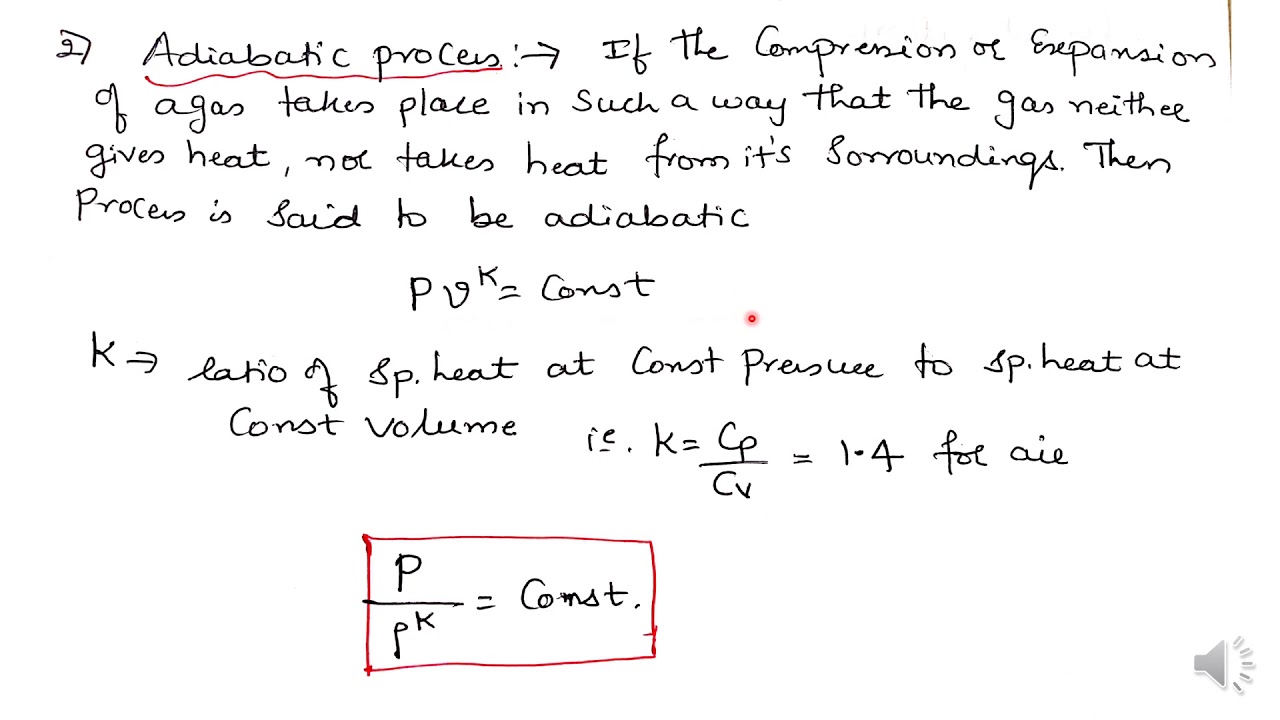 2) Adiabatic process :→ If the Compression or Expansion
of a gas takes place in such a way that the gas neither
gives heat, nor takes heat from it's Sorroundings. Then
Process is said to be adiabatic
P v^K = Const
K → ratio of Sp. heat at Const Pressure to sp. heat at
Const volume i.e. K = Cp/Cv = 1.4 for air
P/ρ^K = Const.